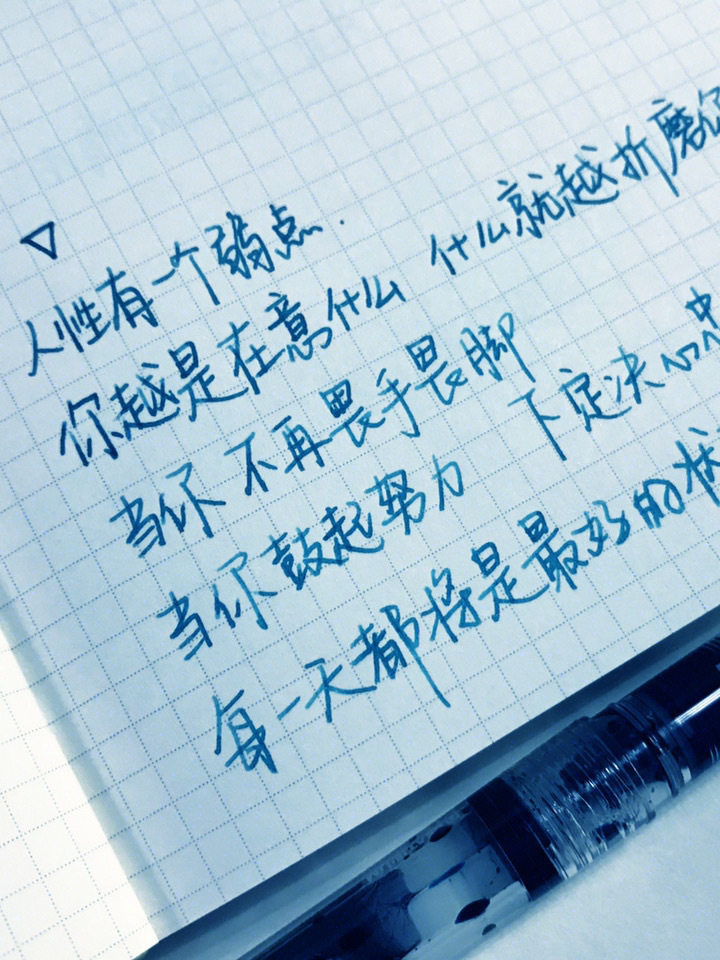 人性有一个弱点.
你越是在意什么 什么就越折磨
当你不再畏手畏脚
当你鼓起努力 下定决心
每一天都将是最好的状